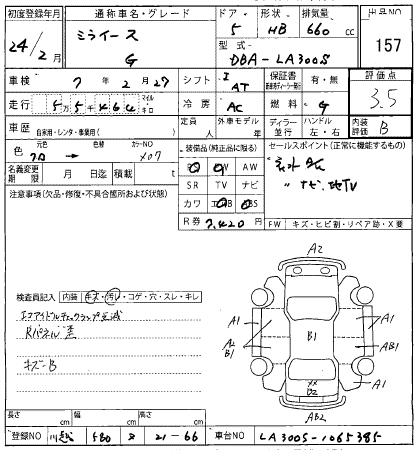 初度登録年月 通称車名・グレード ドア・形状 排気量 出品NO
24/2月 ミライース G 5 HB 660 cc 157
型式 DBA-LA300S
車検 7年2月27 シフト I AT 保証書 有・無 評価点
走行 55464 マイル・キロ 冷房 AC 燃料 G 3.5
車歴 自家用・レンタ・事業用( ) 定員 人 外車モデル 年 ディーラー・並行 ハンドル 左・右 内装評価 B
色 元色 カラーNO X07 装備品(純正品に限る) セールスポイント(正常に機能する)
名義変更期限 月 日迄 積載 t PW AW
SR TV ナビ ナビ,地TV
注意事項(欠品・修復・不具合個所および状態) カワ エアB ABS
R券 7,420 円 FW キズ・ヒビ割・リペア跡・X要
A2
検査員記入 内装 キズ・汚レ・コゲ・穴・スレ・キレ
エコアイドルチェックランプ点滅
Rパネル歪
キズ-B
A1 A1
A2 B1 B1 AB1
A1
XX
B2
AB2
長さ cm 幅 cm 高さ cm
登録NO 川越 580 21-66 車台NO LA300S-1065385